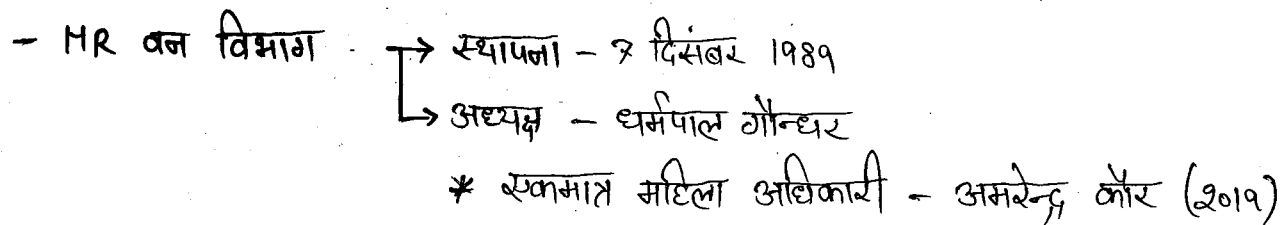 - HR वन विभाग → स्थापना - 7 दिसंबर 1989
→ अध्यक्ष - धर्मपाल गौन्धर
* एकमात्र महिला अधिकारी - अमरेन्द्र कौर (2019)